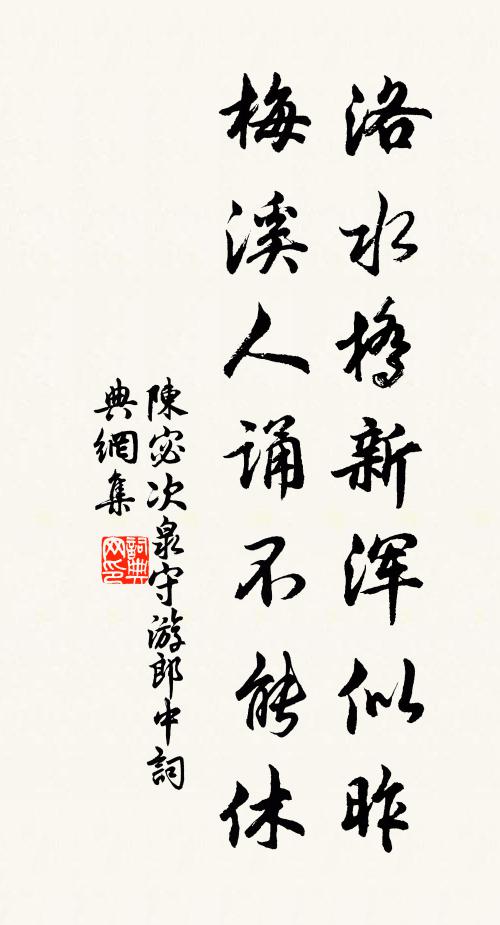 洛水橋新浑似昨
梅溪人誦不能休
陳宓次泉守游郎中詞
典網集
詞典網印